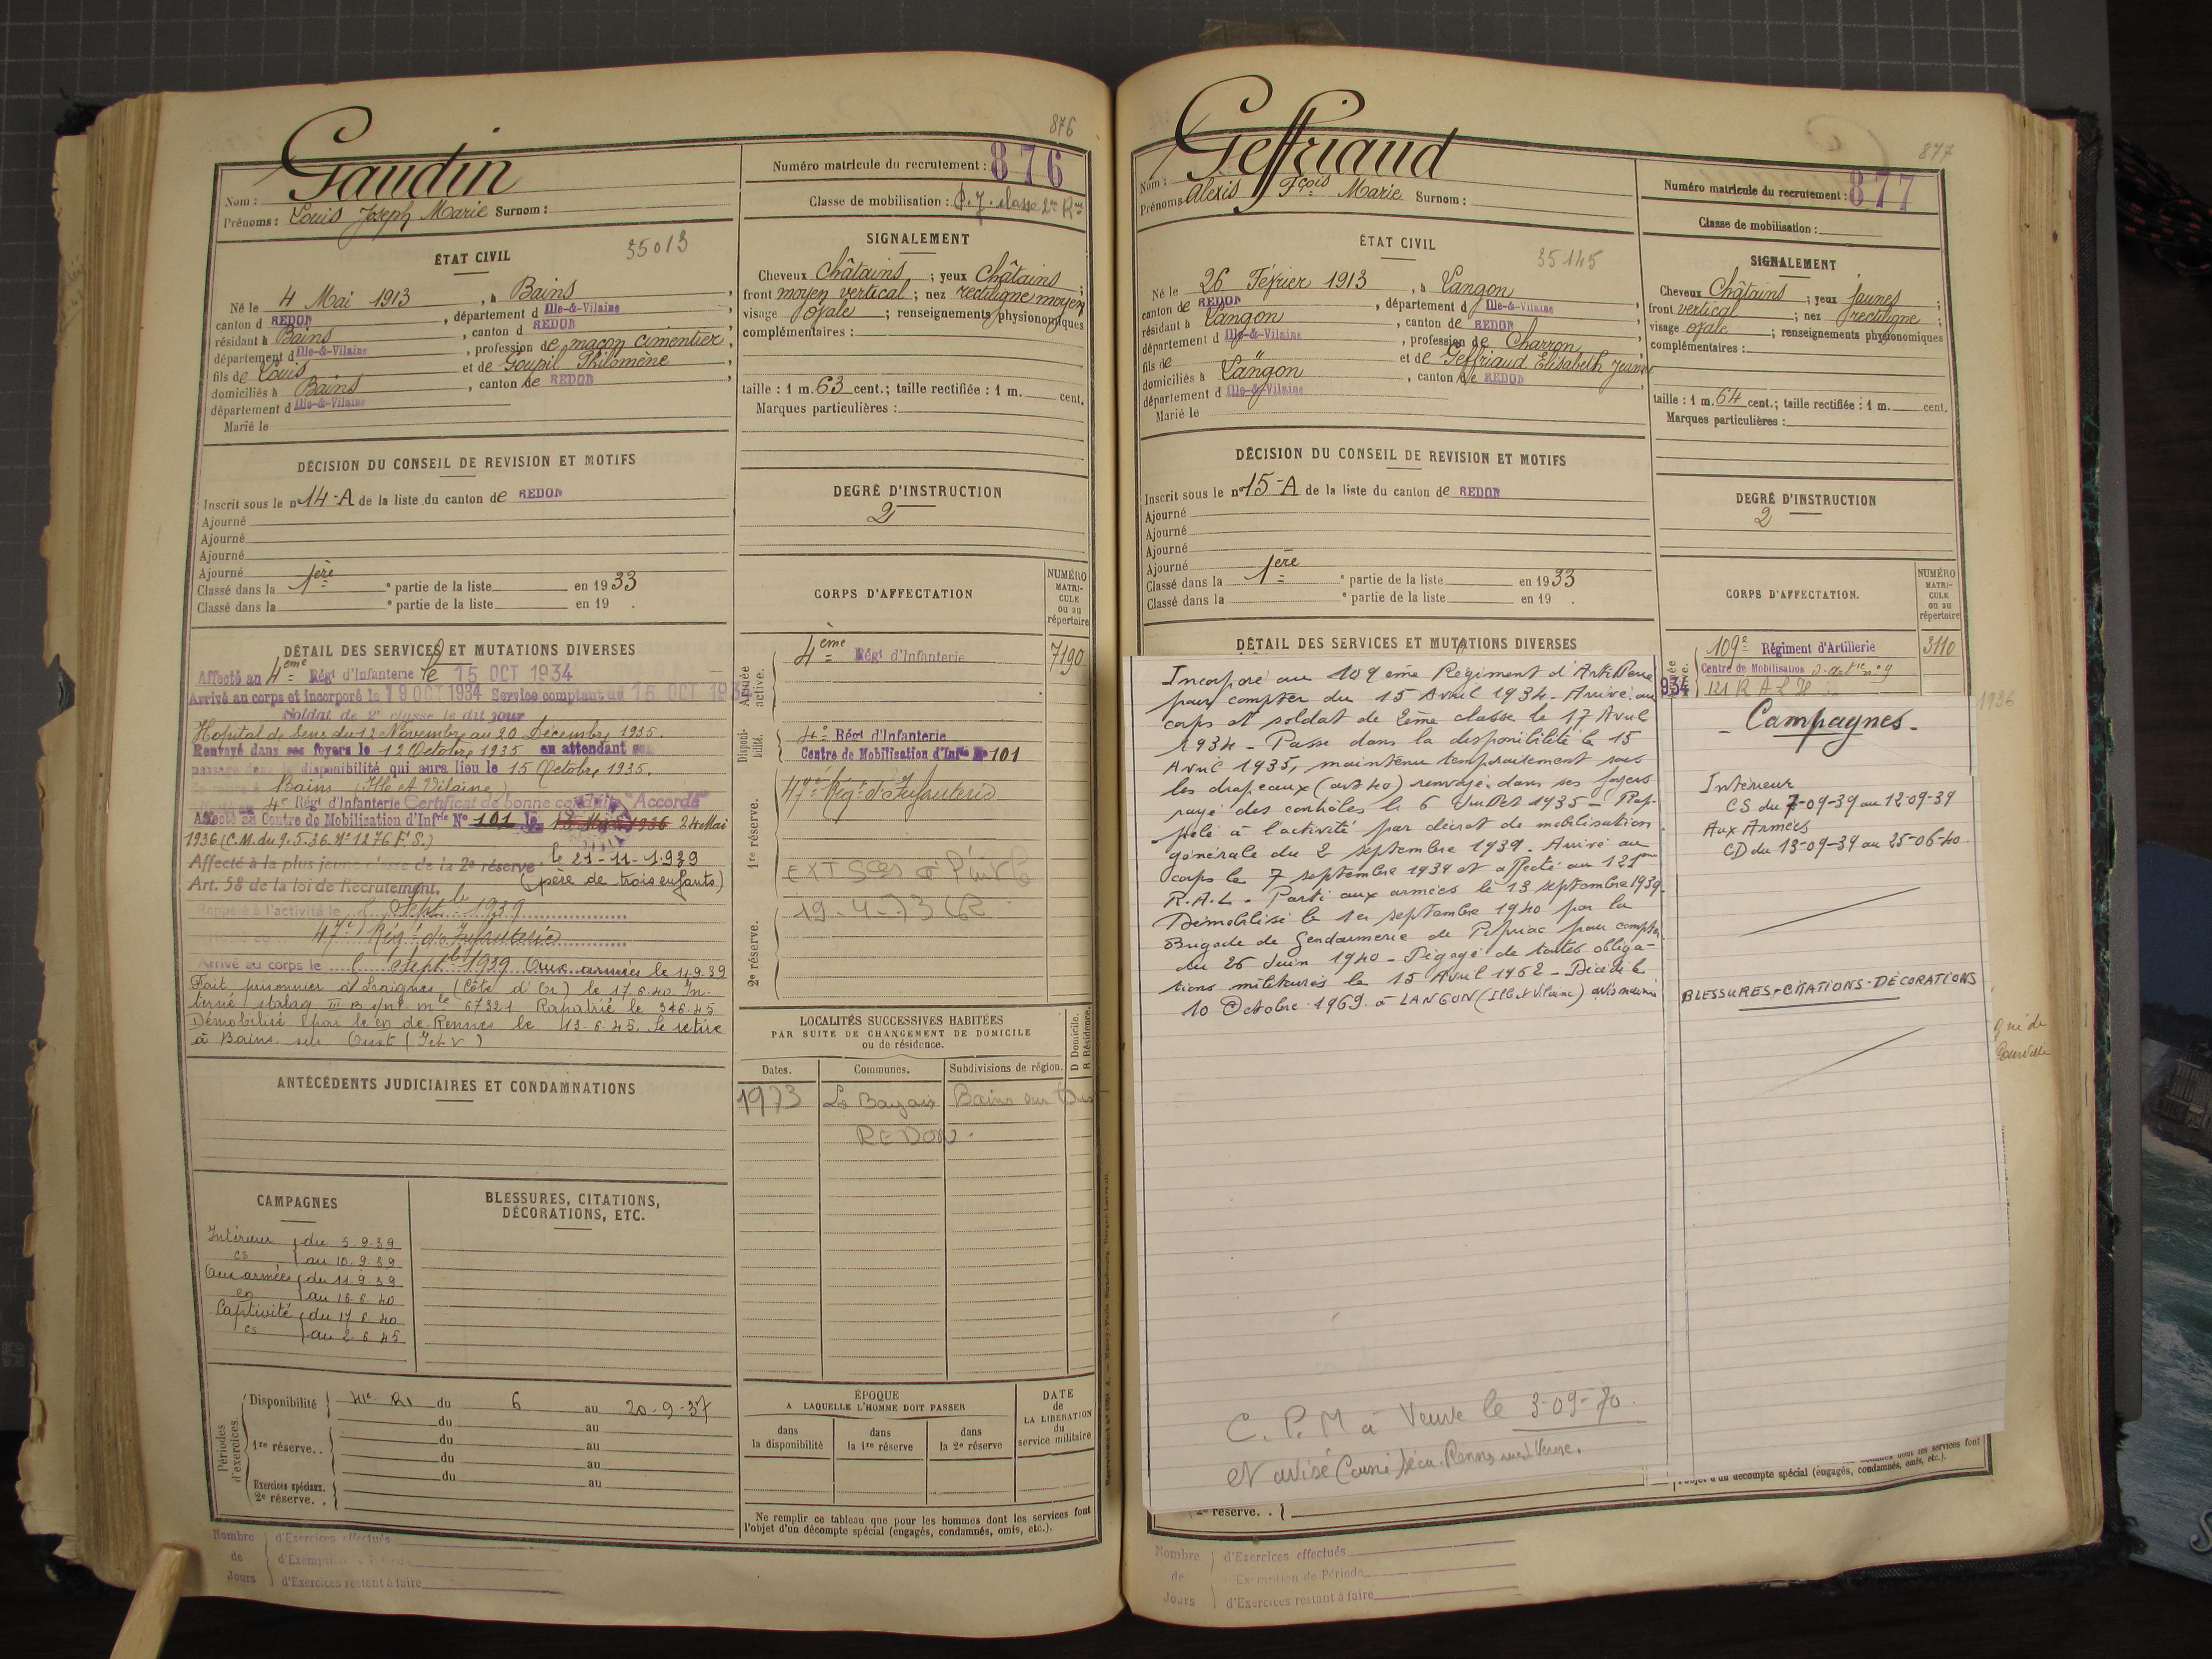 876
Gaudin
Nom :
Prénoms : Louis Joseph Marie Surnom :
Numéro matricule du recrutement : 876
Classe de mobilisation : P. J. classe 2e Rve
ÉTAT CIVIL
35013
Né le 4 Mai 1913, à Bains,
canton d REDON, département d Ille-&-Vilaine,
résidant à Bains, canton d REDON,
département d Ille-&-Vilaine, profession de maçon cimentier,
fils de Louis et de Goupil Philomène
domiciliés à Bains, canton de REDON,
département d Ille-&-Vilaine
Marié le
SIGNALEMENT
Cheveux Châtains ; yeux Châtains ;
front moyen vertical ; nez rectiligne moyen
visage ovale ; renseignements physionomiques
complémentaires :
taille : 1 m. 63 cent. ; taille rectifiée : 1 m. cent.
Marques particulières :
DÉCISION DU CONSEIL DE REVISION ET MOTIFS
Inscrit sous le n° 14-A de la liste du canton de REDON
Ajourné
Ajourné
Ajourné
Ajourné
Classé dans la 1ère e partie de la liste en 1933
Classé dans la e partie de la liste en 19 .
DEGRÉ D'INSTRUCTION
2
CORPS D'AFFECTATION
NUMÉRO MATRI-CULE ou au répertoire
DÉTAIL DES SERVICES ET MUTATIONS DIVERSES
Affecté au 4ème Régt d'Infanterie le 15 OCT 1934
Arrivé au corps et incorporé le 19 OCT 1934 Service comptant du 15 OCT 1934
Soldat de 2e classe le dit jour
Hopital de Sens du 12 Novembre au 20 Décembre 1935.
Renvoyé dans ses foyers le 12 Octobre 1935 en attendant son
passage dans la disponibilité qui aura lieu le 15 Octobre 1935.
Bains (Ille et Vilaine)
4e Régt d'Infanterie Certificat de bonne conduite "Accordé"
Affecté au Centre de Mobilisation d'Infrie N° 101 le 15 Mai 1936 24 Mai
1936 (C.M. du 9.5.36. N° 1876 F.S.)
Affecté à la plus jeune classe de la 2e réserve le 21-11-1939
Art. 58 de la loi de Recrutement. (père de trois enfants)
Rappelé à l'activité le Septbre 1939
47e Régt d'Infanterie
Arrivé au corps le Septbre 1939 Aux armées le 11.9.39
Fait prisonnier à Laignes (Côte d'Or) le 17.6.40 In-
terné stalag III B sous mle 67321 Rapatrié le 3.6.45
Démobilisé par le CD de Rennes le 13.6.45. Se retire
à Bains sur Oust (I et V)
Armée active.
4ème Régt d'Infanterie 7190
Disponi-bilité.
4e Régt d'Infanterie
Centre de Mobilisation d'Infie N° 101
1re réserve.
47e Régt d'Infanterie
19-4-73
2e réserve.
LOCALITÉS SUCCESSIVES HABITÉES
PAR SUITE DE CHANGEMENT DE DOMICILE
ou de résidence.
D Domicile. R Résidence.
Dates. Communes. Subdivisions de région.
1973 La Bayais Bains sur Oust
REDON.
ANTÉCÉDENTS JUDICIAIRES ET CONDAMNATIONS
CAMPAGNES
Intérieur du 5.9.39
CS au 10.9.39
Aux armées du 11.9.39
au 16.6.40
Captivité du 17.6.40
CS au 2.6.45
BLESSURES, CITATIONS,
DÉCORATIONS, ETC.
Périodes d'exercices.
Disponibilité 41e RI du 6 au 20-9-37
du au
1re réserve. . du au
du au
Exercices spéciaux. du au
2e réserve. .
ÉPOQUE
A LAQUELLE L'HOMME DOIT PASSER
dans la disponibilité
dans la 1re réserve
dans la 2e réserve
DATE de LA LIBÉRATION du service militaire
Ne remplir ce tableau que pour les hommes dont les services font
l'objet d'un décompte spécial (engagés, condamnés, omis, etc.).
Nombre de Jours
d'Exercices effectués
d'Exemption
d'Exercices restant à faire
877
Geffriaud
Nom :
Prénoms Alexis Fçois Marie Surnom :
Numéro matricule du recrutement : 877
Classe de mobilisation :
ÉTAT CIVIL
35145
Né le 26 Février 1913, à Langon,
canton de REDON, département d Ille-&-Vilaine,
résidant à Langon, canton de REDON,
département d Ille-&-Vilaine, profession de Charron,
fils de " et de Geffriaud Elisabeth Jeanne
domiciliés à Langon, canton de REDON,
département d Ille-&-Vilaine
Marié le
SIGNALEMENT
Cheveux Châtains ; yeux jaunes ;
front vertical ; nez rectiligne ;
visage ovale ; renseignements physionomiques
complémentaires :
taille : 1 m. 64 cent. ; taille rectifiée : 1 m. cent.
Marques particulières :
DÉCISION DU CONSEIL DE REVISION ET MOTIFS
Inscrit sous le n° 15-A de la liste du canton de REDON
Ajourné
Ajourné
Ajourné
Ajourné
Classé dans la 1ère e partie de la liste en 1933
Classé dans la e partie de la liste en 19 .
DEGRÉ D'INSTRUCTION
2
CORPS D'AFFECTATION.
NUMÉRO MATRI-CULE ou au répertoire
DÉTAIL DES SERVICES ET MUTATIONS DIVERSES
109e Régiment d'Artillerie 3110
Centre de Mobilisation d'artie n° 9
934
121 R A L H
1936
Incorporé au 109ème Régiment d'Artillerie
pour compter du 15 Avril 1934 - Arrivé au
corps et soldat de 2ème classe le 17 Avril
1934 - Passé dans la disponibilité le 15
Avril 1935, maintenu temporairement sous
les drapeaux (art 40) renvoyé dans ses foyers
rayé des contrôles le 6 Juillet 1935 - Rap-
pelé à l'activité par décret de mobilisation
générale du 2 septembre 1939. Arrivé au
corps le 7 septembre 1939 et affecté au 121ème
R.A.L. - Parti aux armées le 13 septembre 1939.
Démobilisé le 1er septembre 1940 par la
Brigade de Gendarmerie de Pipriac pour compter
du 26 Juin 1940 - Dégagé de toutes obliga-
tions militaires le 15 Avril 1962 - Décédé le
10 Octobre 1969 à LANGON (Ille et Vilaine) avis mairie
- Campagnes -
Intérieur
CS du 7-09-39 au 12-09-39
Aux Armées
CD du 13-09-39 au 25-06-40
BLESSURES - CITATIONS - DÉCORATIONS
C.P.M à Veuve le 3-09-70.
l'objet d'un décompte spécial (engagés, condamnés, omis, etc.).
2e réserve. .
Nombre de Jours
d'Exercices effectués
Exemption de Période
d'Exercices restant à faire